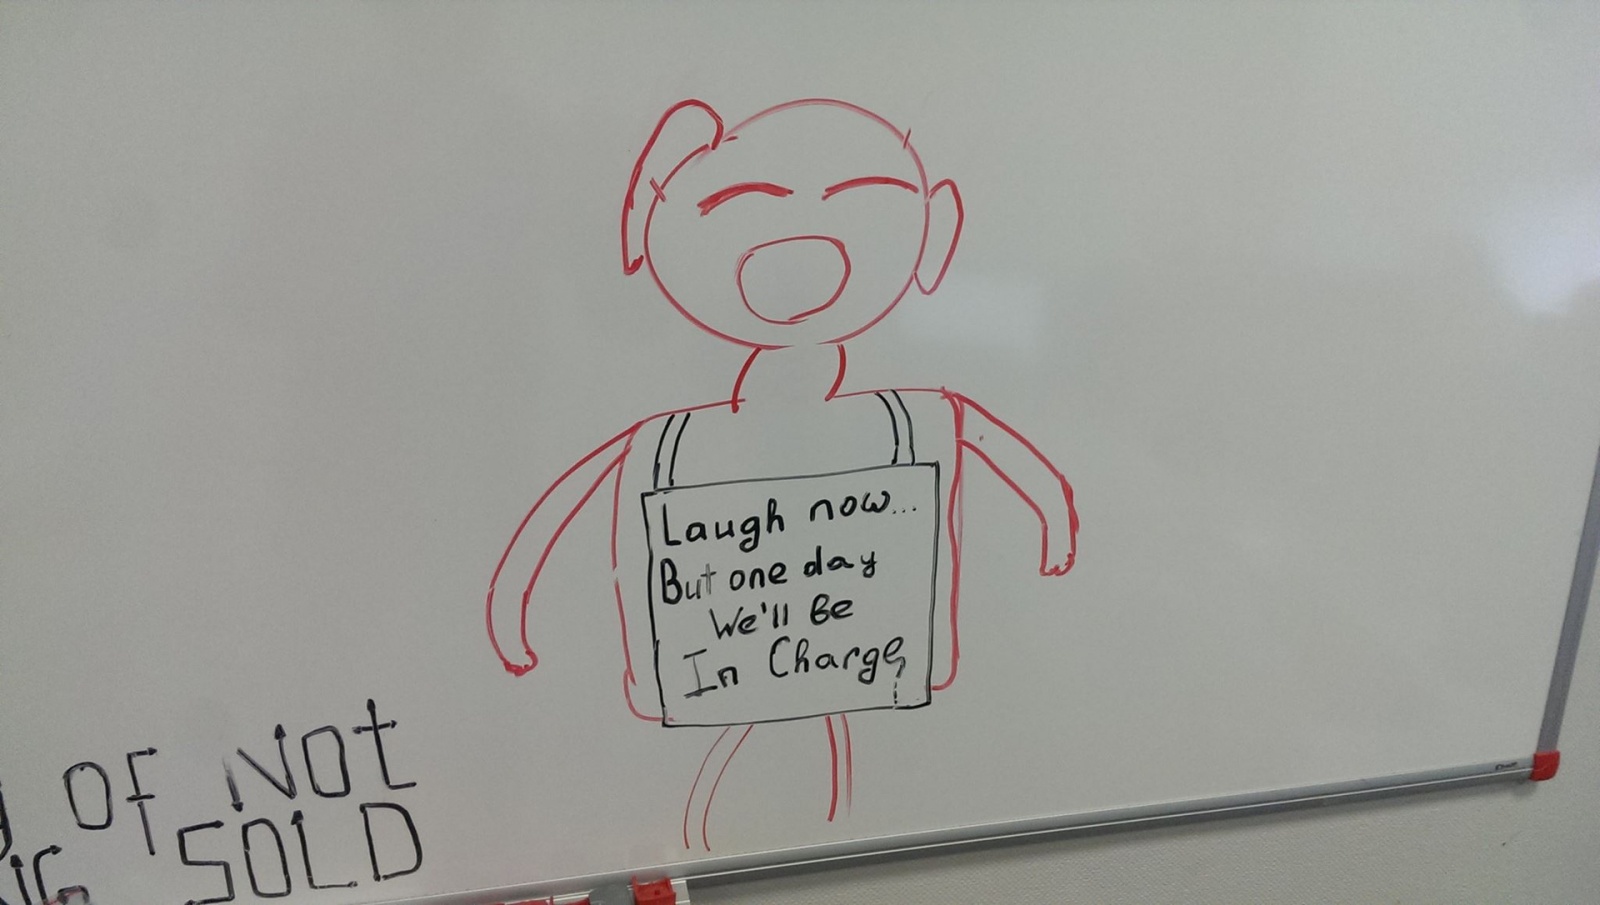 Laugh now...
But one day
We'll Be
In Charge
OF NOt
SOLD